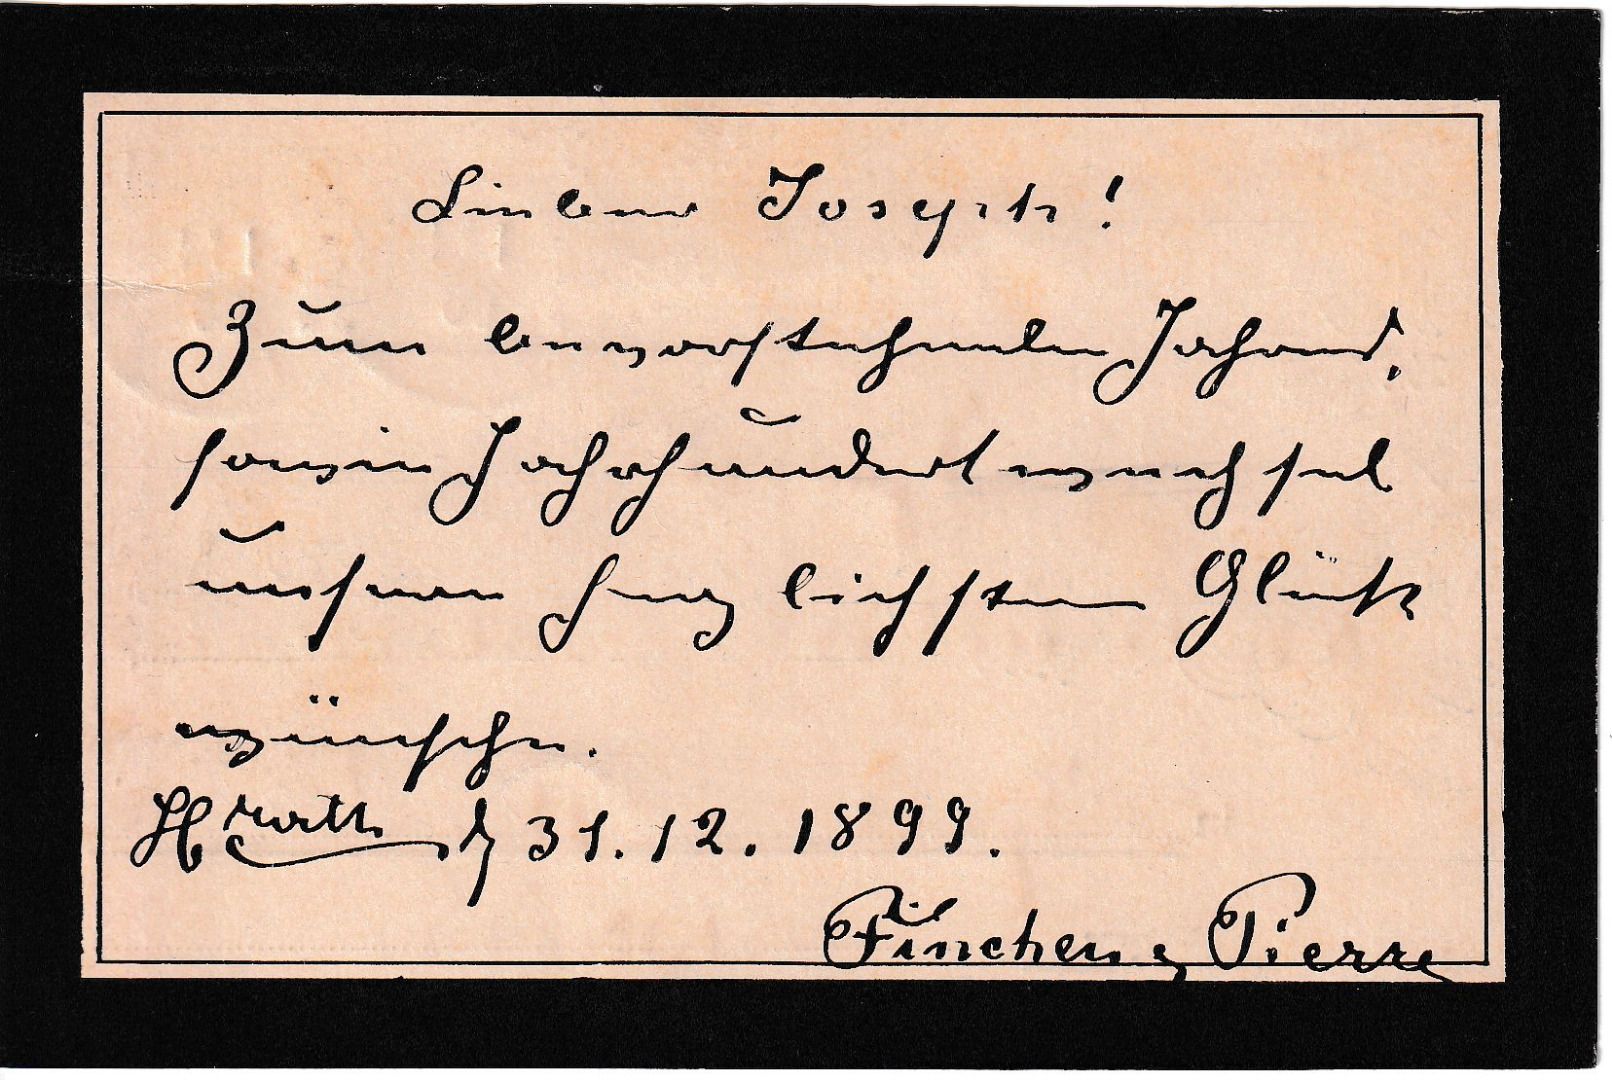 Lieber Joseph!
Zum bevorstehenden Jahres,
sowie Jahrhundertwechsel
unseren herzlichsten Glück
wünsche.
d 31.12.1899.
Finchen & Pierre